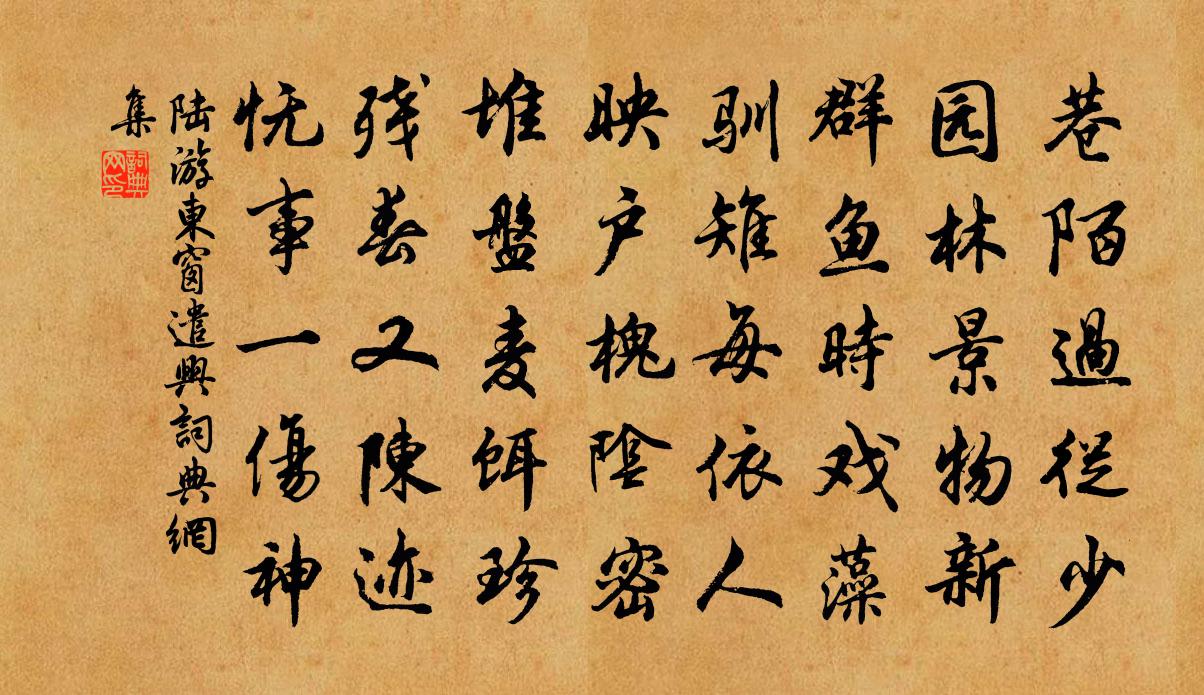 巷陌過從少
园林景物新
群鱼時戏藻
馴雉每依人
映户槐陰密
堆盤麦饵珍
残春又陳迹
怃事一傷神
陆游東窗遣興詞典網
集
詞典
网印